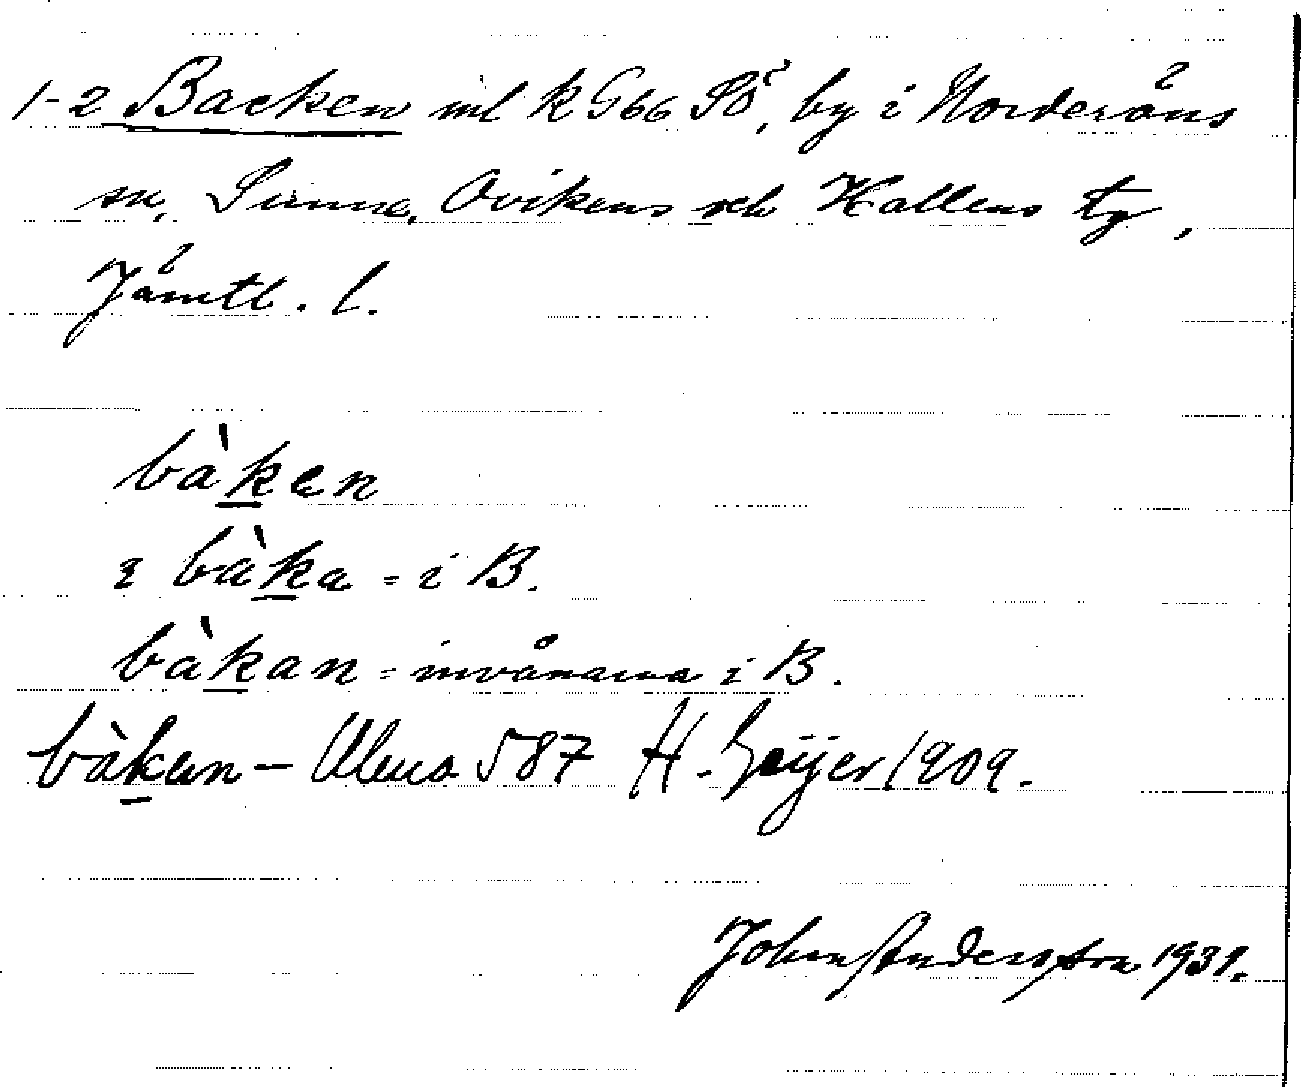 1-2 Backen ml k G66 SÖ, by i Norderöns
sn, Sunne, Ovikens och Hallens tg,
Jämtl. l.
bàken
i bàka = i B.
bàkan = invånarna i B.
bàken — 587 H. Geijer 1909.
John Andersson 1931.